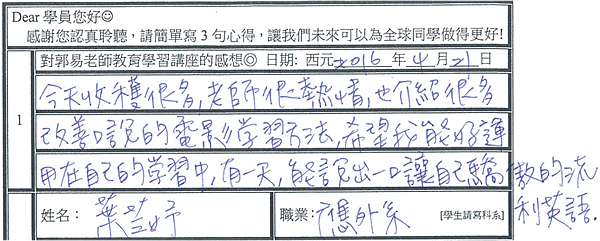 Dear 學員您好☺
感謝您認真聆聽，請簡單寫 3 句心得，讓我們未來可以為全球同學做得更好!
對郭易老師教育學習講座的感想◎ 日期: 西元2016 年 4 月 21 日
1
今天收穫很多，老師很熱情，也介紹很多
改善口說的電影學習方法，希望我能好運
用在自己的學習中，有一天，能說出一口讓自己驕傲的流
利英語.
姓名: 葉芷妤 職業: 應外系 [學生請寫科系]